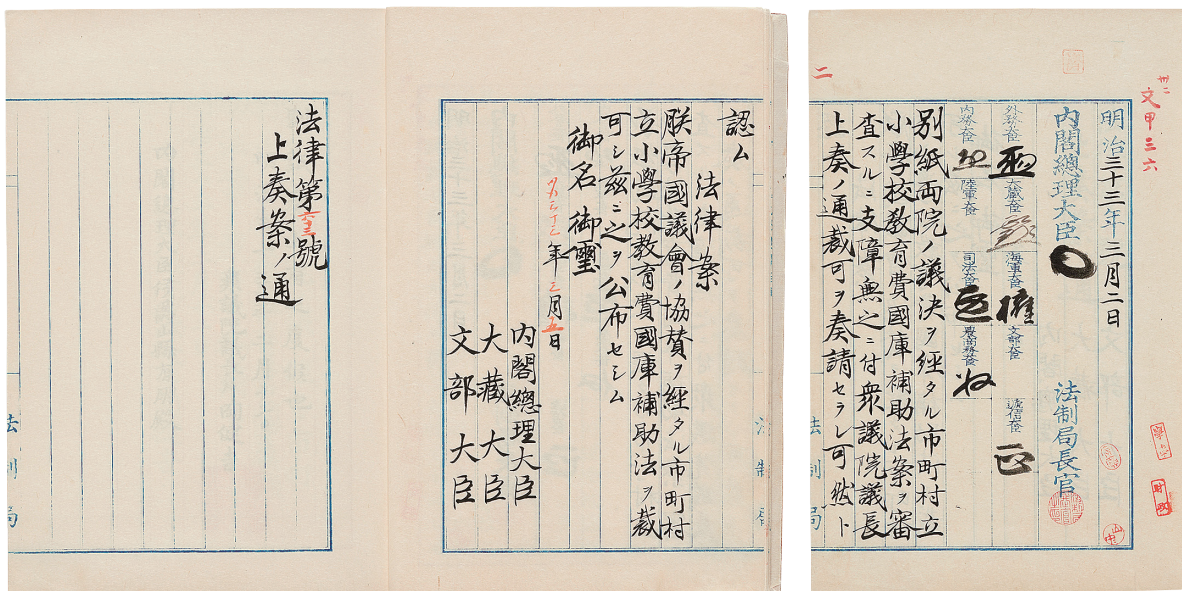 卅二
文甲三六
明治三十三年三月二日
内閣總理大臣
法制局長官
外務大臣
大藏大臣
海軍大臣
文部大臣
遞信大臣
内務大臣
陸軍大臣
司法大臣
農商務大臣
別紙両院ノ議決ヲ經タル市町村立
小學校教育費國庫補助法案ヲ審
査スルニ支障無之ニ付衆議院議長
上奏ノ通裁可ヲ奏請セラレ可然ト
二
法制局
認ム
法律案
朕帝國議會ノ協賛ヲ經タル市町村
立小學校教育費國庫補助法ヲ裁
可シ茲ニ之ヲ公布セシム
御名御璽
明治三十三年三月五日
内閣總理大臣
大藏大臣
文部大臣
法制局
法律第六十三號
上奏案ノ通
法制局